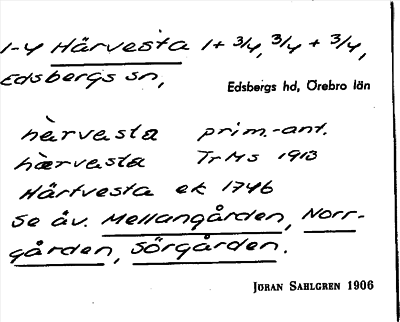 1-4 Härvesta 1+ 3/4, 3/4 + 3/4,
Edsbergs sn,
Edsbergs hd, Örebro län
hàrvesta prim.-ant.
hærvesta TrMs 1913
Härtvesta ek 1746
Se äv. Mellangården, Norr-
gården, Sörgården.
JÖRAN SAHLGREN 1906